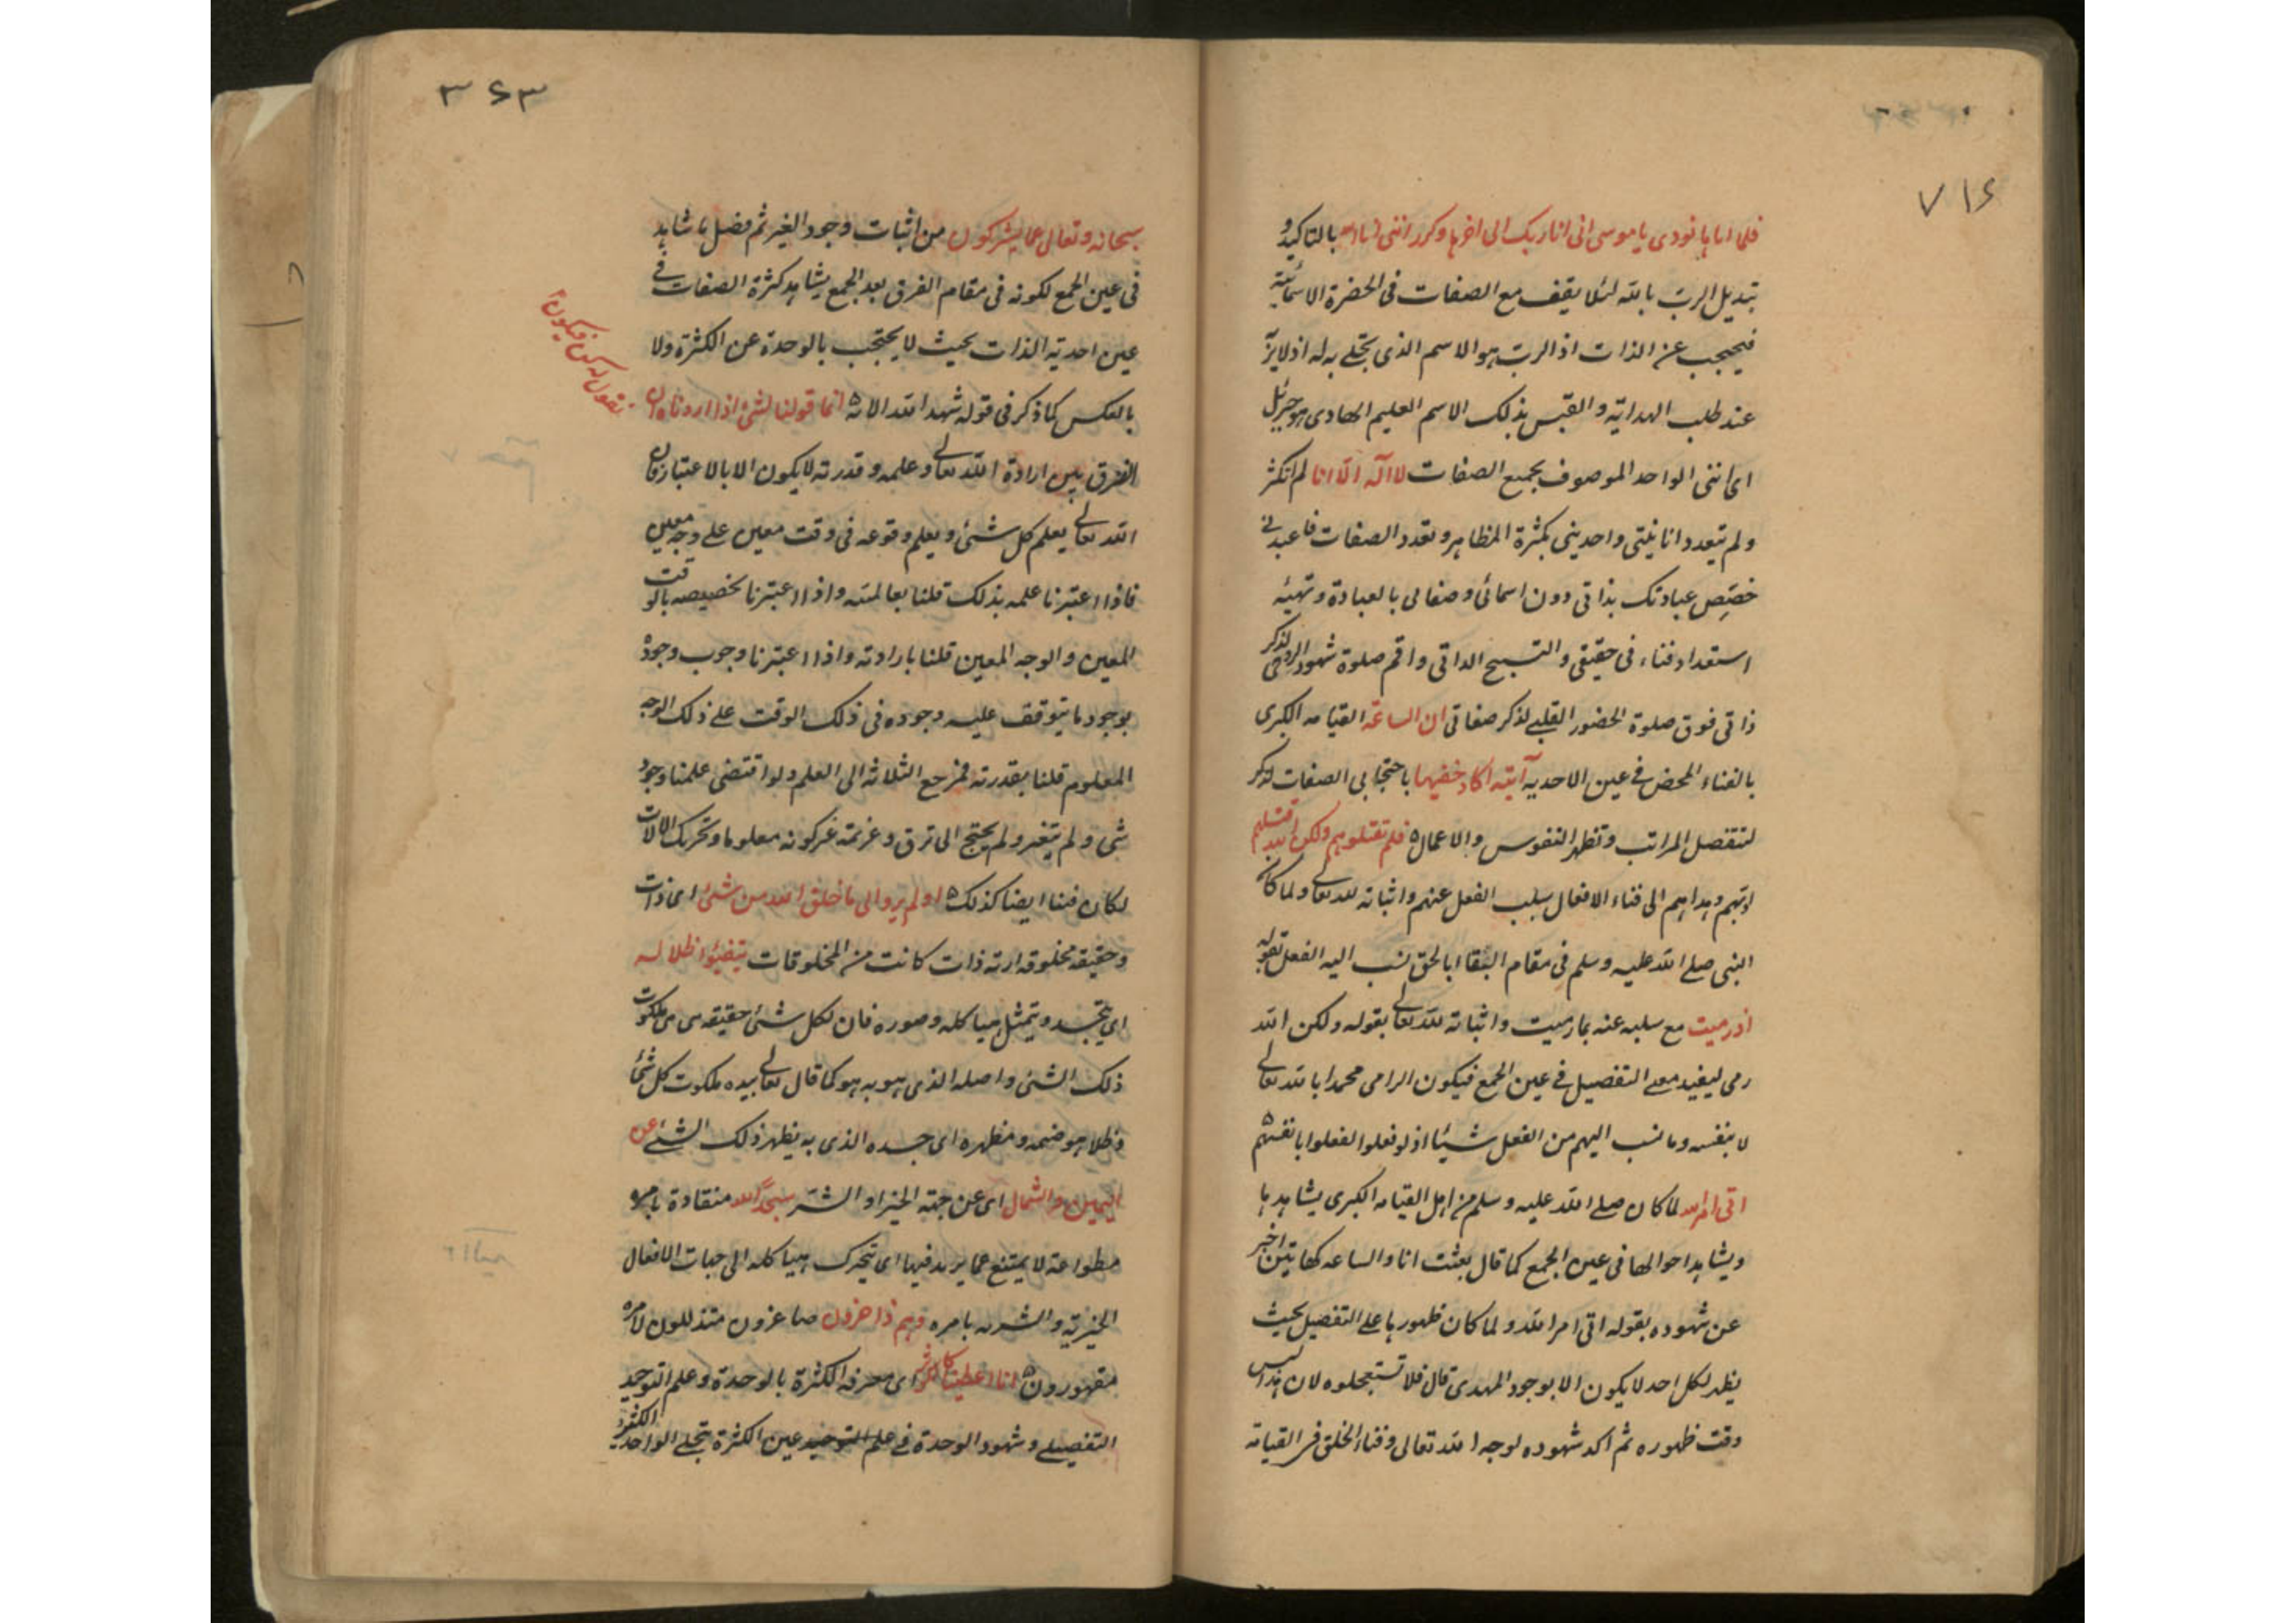 ٧١٦
فلما اتاها نودى ياموسى انى اناربك الى اخرها وكرر اننى انا الله بالتاكيد و
تبديل الرب بالله لئلا يقف مع الصفات فى الحضرة الاسمائية
فيحجب عن الذات اذ الرب هو الاسم الذى تجلى به له اذ لا يرا
عند طلب الهداية والقبس بذلك الاسم العليم الهادى هو جبرئيل
اى اننى الواحد الموصوف بجميع الصفات لا اله الا انا لم اتكثر
ولم تتعدد انانيتى واحديتى بكثرة المظاهر وتعدد الصفات فاعبدنى
خصّص عبادتك بذاتى دون اسمائى وصفاتى بالعبادة وتهيئه
استعداد فناء فى حقيقتى والتسبيح الذاتى واقم صلوة شهود الروحى لذكر
ذاتى فوق صلوة الحضور القلبى لذكر صفاتى ان الساعة القيامه الكبرى
بالفناء المحض فى عين الاحديه آتيه اكاد اخفيها باحتجابى الصفات لذكر
لتنفصل المراتب وتظهر النفوس والاعمال ٥ فلم تقتلوهم ولكن الله قتلهم
ادّبهم وهداهم الى فناء الافعال بسلب الفعل عنهم واثباته لله تعالى ولما كان
النبى صلى الله عليه وسلم فى مقام البقاء بالحق نسب اليه الفعل بقوله
اذ رميت مع سلبه عنه بما رميت واثباته لله تعالى بقوله ولكن الله
رمى ليفيد معنى التفصيل فى عين الجمع فيكون الرامى محمدا بالله تعالى
لا بنفسه وما نسب اليهم من الفعل شيئا اذ لو فعلوا لفعلوا بانفسهم ٥
اتى امر الله لما كان صلى الله عليه وسلم من اهل القيامه الكبرى يشاهدها
ويشاهد احوالها فى عين الجمع كما قال بعثت انا والساعه كهاتين اخبر
عن شهوده بقوله اتى امر الله ولما كان ظهورها على التفصيل بحيث
يظهر لكل احد لا يكون الا بوجود المهدى قال فلا تستعجلوه لان هذا ليس
وقت ظهوره ثم اكد شهوده لوجه الله تعالى وفناء الخلق فى القيامة
٣٦٣
سبحانه وتعالى عما يشركون من اثبات وجود الغير ثم فصل ما شاهد
فى عين الجمع لكونه فى مقام الفرق بعد الجمع يشاهد كثرة الصفات فى
عين احدية الذات بحيث لا يحتجب بالوحدة عن الكثرة ولا
بالعكس كما ذكر فى قوله شهد الله الايه ٥ انما قولنا لشئ اذا اردناه ان
نقول له كن فيكون
الفرق بين ارادة الله تعالى وعلمه وقدرته لا يكون الا بالاعتبار فان
الله تعالى يعلم كل شئ ويعلم وقوعه فى وقت معين على وجه معين
فاذا اعتبرنا علمه بذلك قلنا بعالميته واذا اعتبرنا تخصيصه بالوقت
المعين والوجه المعين قلنا بارادته واذا اعتبرنا وجوب وجوده
بوجود ما يتوقف عليه وجوده فى ذلك الوقت على ذلك الوجه
المعلوم قلنا بقدرته فمرجع الثلاثه الى العلم ولو اقتضى علمنا وجود
شى ولم يتغير ولم يحتج الى ترق وعزيمة غير كونه معلوما وتحريك الالات
لكان فينا ايضا كذلك ٥ اولم يروا الى ما خلق الله من شئ اى ذات
وحقيقه مخلوقه اية ذات كانت من المخلوقات يتفيؤا ظلاله
اى يتجسد ويتمثل هياكله وصوره فان لكل شئ حقيقه هى ملكوت
ذلك الشئ واصله الذى هو به هو كما قال تعالى بيده ملكوت كل شئ
وظلا هو صنمه ومظهره اى جسده الذى به يظهر ذلك الشئ عن
اليمين والشمال اى عن جهة الخير والشر سجّدا لله منقادة بامره
مطواعة لا يمتنع عما يريد فيها اى يتحرك هياكله الى جهات الافعال
الخيرية والشريه بامره وهم داخرون صاغرون متذللون لامره
مقهورون ٥ انا اعطيناك الكوثر اى معرفة الكثرة بالوحدة وعلم التوحيد
التفصيلى وشهود الوحدة فى عين الكثرة بتجلى الواحد الكثير